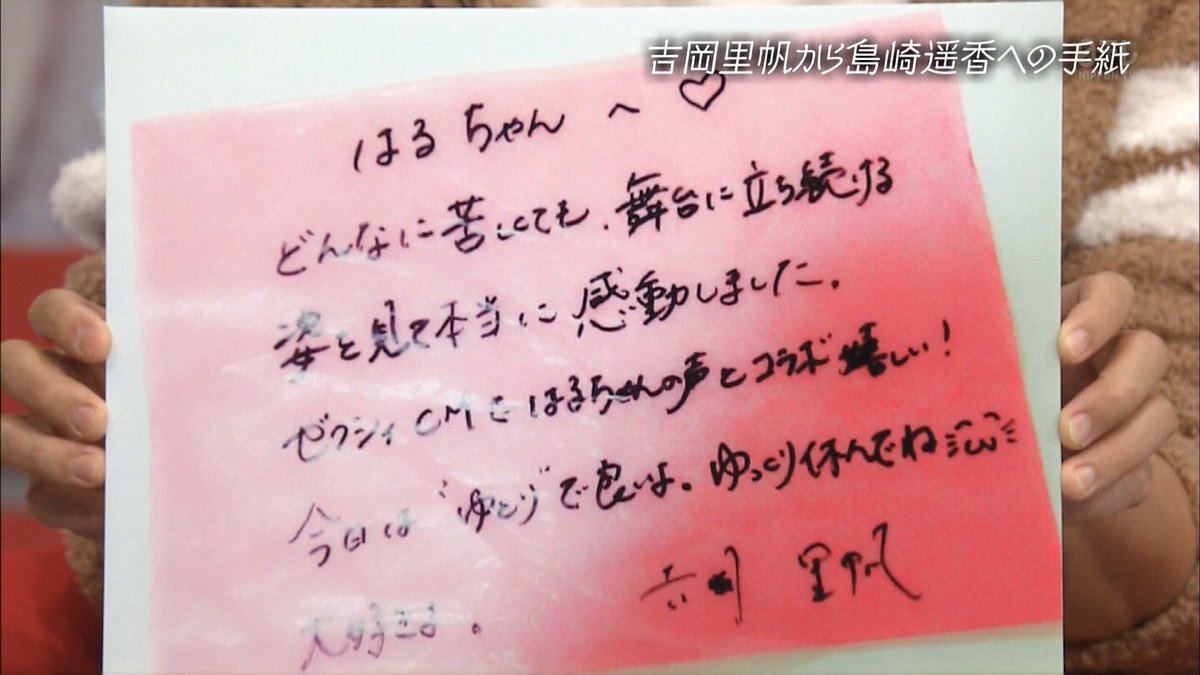 吉岡里帆から島崎遥香への手紙
はるちゃんへ♡
どんなに苦しくても、舞台に立ち続ける
姿を見て本当に感動しました。
ゼクシィCMではるちゃんの声とコラボ嬉しい!
今日は“ゆとり”で良いよ。ゆっくり休んでね
大好きよ。
吉岡 里帆